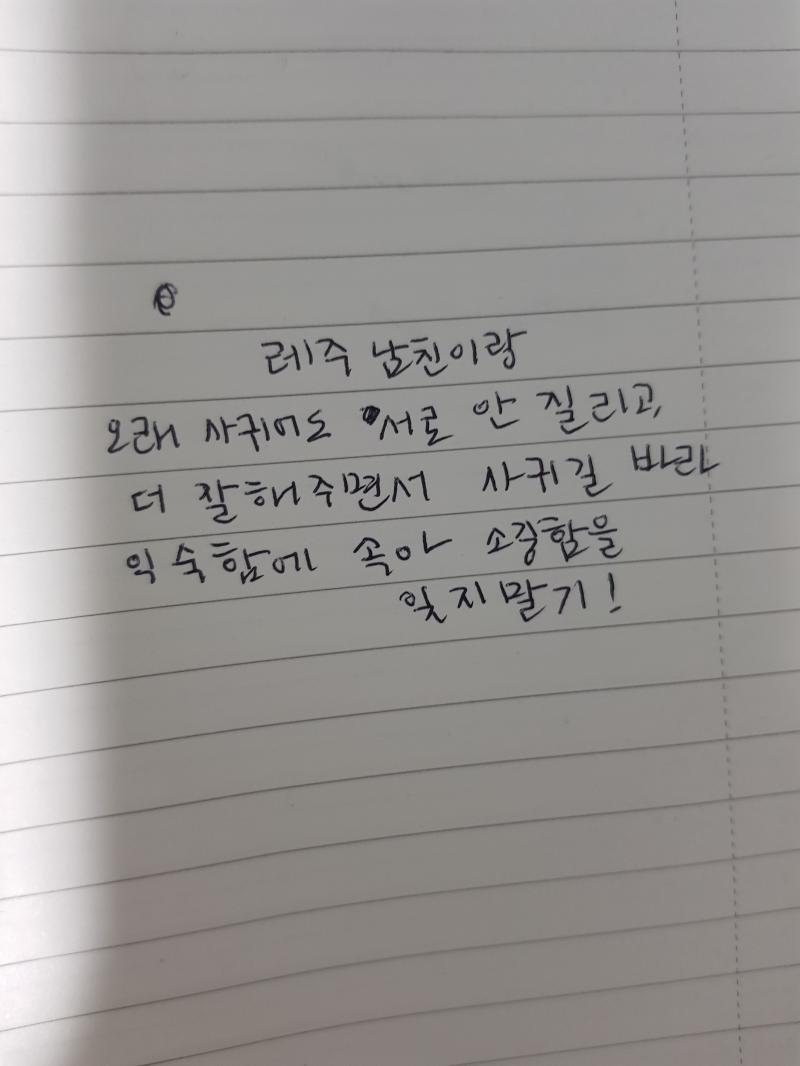 레주 남친이랑
오래 사귀어도 서로 안 질리고,
더 잘해주면서 사귀길 바라
익숙함에 속아 소중함을
잊지말기!